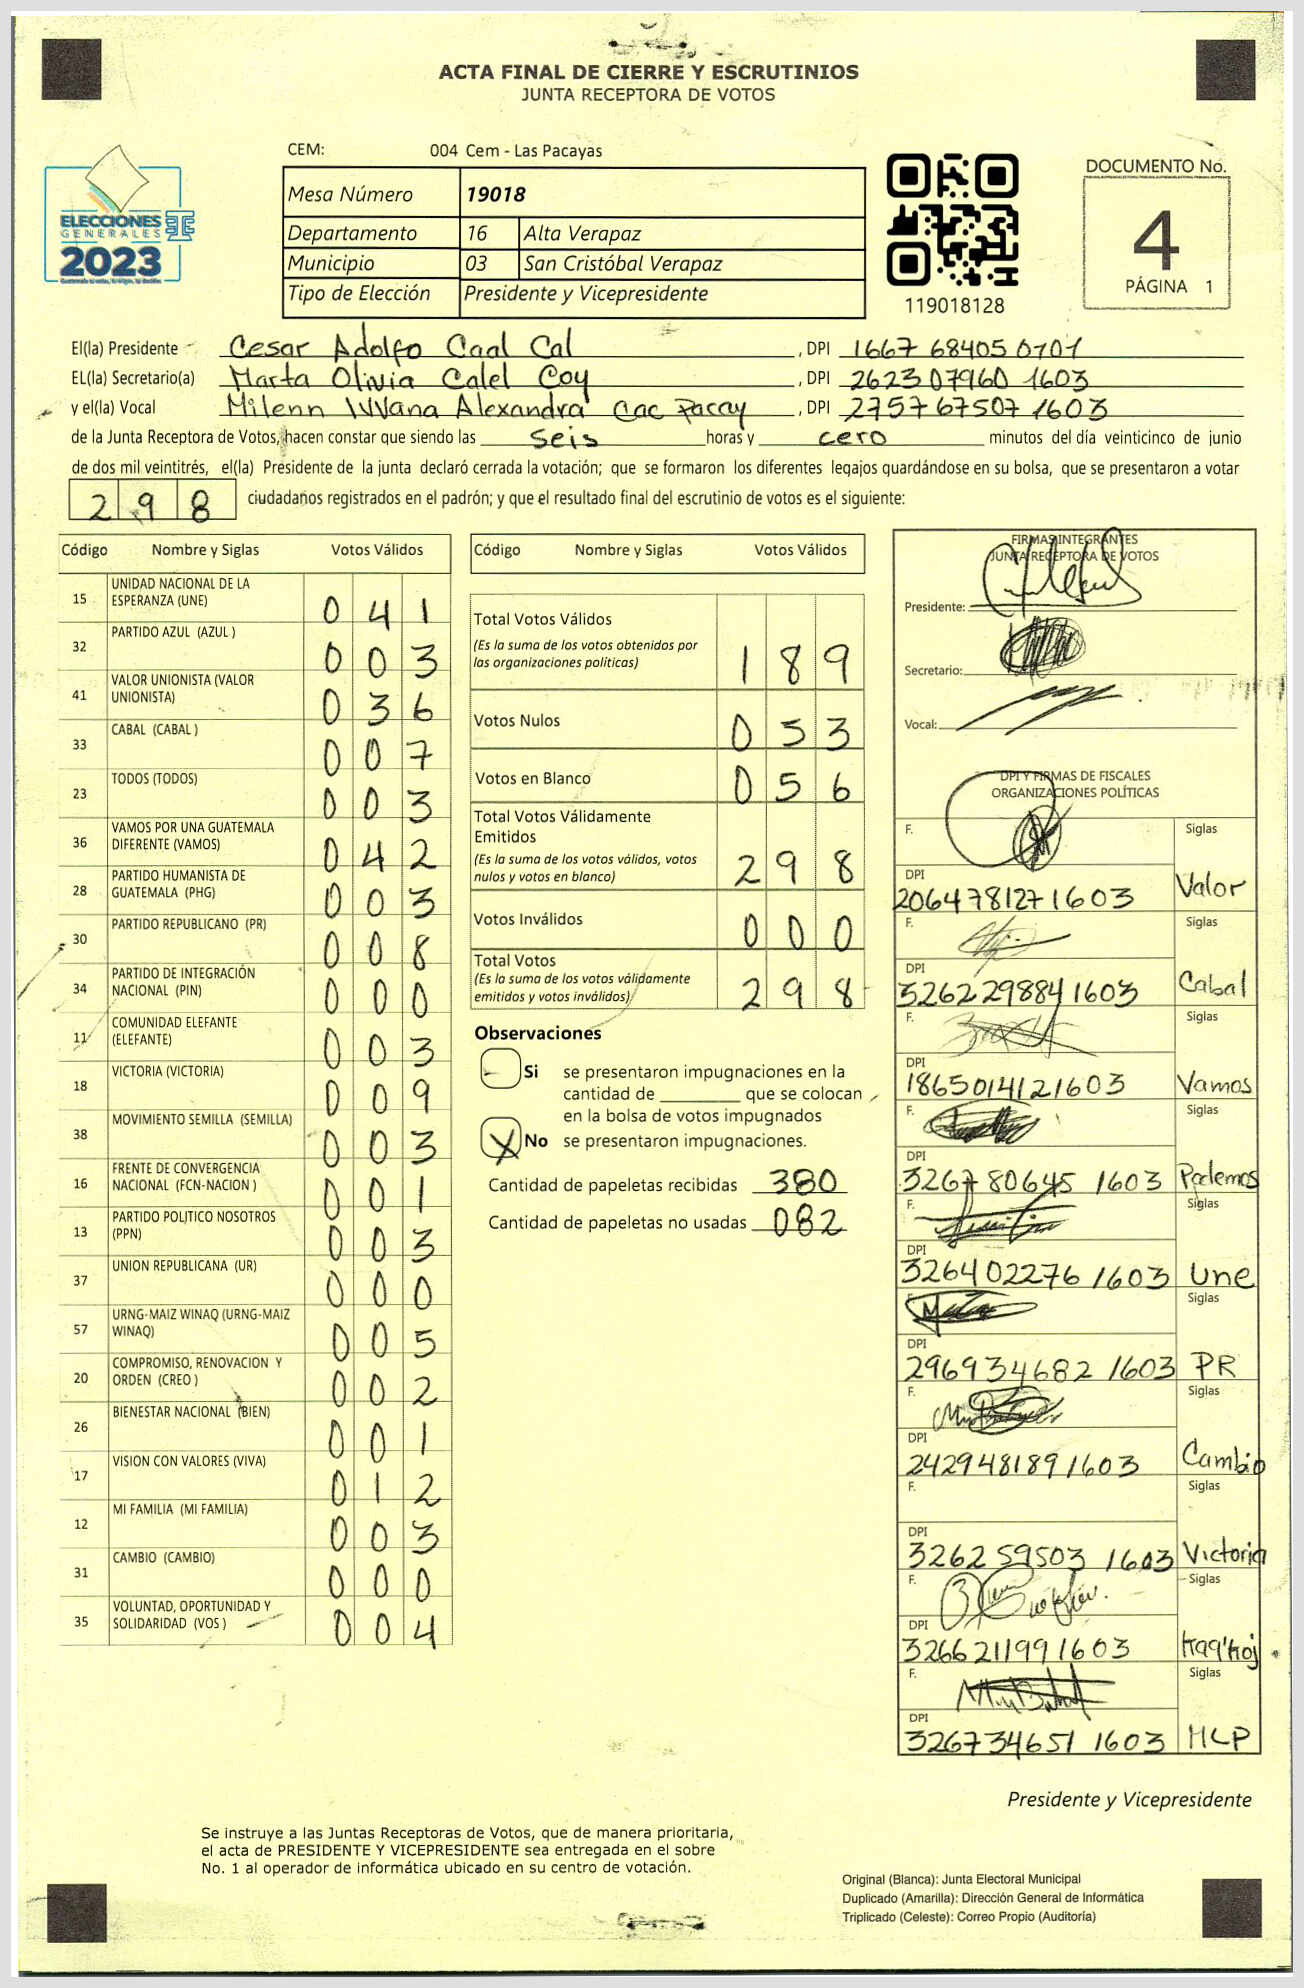 ACTA FINAL DE CIERRE Y ESCRUTINIOS
JUNTA RECEPTORA DE VOTOS
CEM: 004 Cem - Las Pacayas
ELECCIONES
GENERALES
2023
Mesa Número 19018
Departamento 16 Alta Verapaz
Municipio 03 San Cristóbal Verapaz
Tipo de Elección Presidente y Vicepresidente
119018128
DOCUMENTO No.
4
PÁGINA 1
El(la) Presidente Cesar Adolfo Caal Cal , DPI 1667 68405 0701
EL(la) Secretario(a) Marta Olivia Calel Coy , DPI 2623 07960 1603
y el(la) Vocal Alexandra Cac Paccay , DPI 2757 67507 1603
de la Junta Receptora de Votos, hacen constar que siendo las seis horas y cero minutos del día veinticinco de junio
de dos mil veintitrés, el(la) Presidente de la junta declaró cerrada la votación; que se formaron los diferentes legajos guardándose en su bolsa, que se presentaron a votar
298 ciudadanos registrados en el padrón; y que el resultado final del escrutinio de votos es el siguiente:
Código Nombre y Siglas Votos Válidos
15 UNIDAD NACIONAL DE LA
ESPERANZA (UNE) 041
32 PARTIDO AZUL (AZUL ) 003
41 VALOR UNIONISTA (VALOR
UNIONISTA) 036
33 CABAL (CABAL ) 007
23 TODOS (TODOS) 003
36 VAMOS POR UNA GUATEMALA
DIFERENTE (VAMOS) 042
28 PARTIDO HUMANISTA DE
GUATEMALA (PHG) 003
30 PARTIDO REPUBLICANO (PR) 008
34 PARTIDO DE INTEGRACIÓN
NACIONAL (PIN) 000
11 COMUNIDAD ELEFANTE
(ELEFANTE) 003
18 VICTORIA (VICTORIA) 009
38 MOVIMIENTO SEMILLA (SEMILLA) 003
16 FRENTE DE CONVERGENCIA
NACIONAL (FCN-NACION ) 001
13 PARTIDO POLITICO NOSOTROS
(PPN) 003
37 UNION REPUBLICANA (UR) 000
57 URNG-MAIZ WINAQ (URNG-MAIZ
WINAQ) 005
20 COMPROMISO, RENOVACION Y
ORDEN (CREO ) 002
26 BIENESTAR NACIONAL (BIEN) 001
17 VISION CON VALORES (VIVA) 012
12 MI FAMILIA (MI FAMILIA) 003
31 CAMBIO (CAMBIO) 000
35 VOLUNTAD, OPORTUNIDAD Y
SOLIDARIDAD (VOS ) 004
Código Nombre y Siglas Votos Válidos
Total Votos Válidos
(Es la suma de los votos obtenidos por
las organizaciones políticas) 189
Votos Nulos 053
Votos en Blanco 056
Total Votos Válidamente
Emitidos
(Es la suma de los votos válidos, votos
nulos y votos en blanco) 298
Votos Inválidos 000
Total Votos
(Es la suma de los votos válidamente
emitidos y votos inválidos) 298
Observaciones
Si se presentaron impugnaciones en la
cantidad de ________ que se colocan
en la bolsa de votos impugnados
X No se presentaron impugnaciones.
Cantidad de papeletas recibidas 380
Cantidad de papeletas no usadas 082
FIRMAS INTEGRANTES
JUNTA RECEPTORA DE VOTOS
Presidente:
Secretario:
Vocal:
DPI Y FIRMAS DE FISCALES
ORGANIZACIONES POLÍTICAS
F. Siglas
DPI
2064781271603 Valor
F. Siglas
DPI
3262298841603 Cabal
F. Siglas
DPI
1865014121603 Vamos
F. Siglas
DPI
3267 80645 1603 Podemos
F. Siglas
DPI
326402276 1603 Une
F. Siglas
DPI
296934682 1603 PR
F. Siglas
DPI
2429481891603 Cambio
F. Siglas
DPI
3262 59503 1603 Victoria
F. Siglas
DPI
3266211991603
F. Siglas
DPI
326734651 1603 MLP
Presidente y Vicepresidente
Se instruye a las Juntas Receptoras de Votos, que de manera prioritaria,
el acta de PRESIDENTE Y VICEPRESIDENTE sea entregada en el sobre
No. 1 al operador de informática ubicado en su centro de votación.
Original (Blanca): Junta Electoral Municipal
Duplicado (Amarilla): Dirección General de Informática
Triplicado (Celeste): Correo Propio (Auditoría)